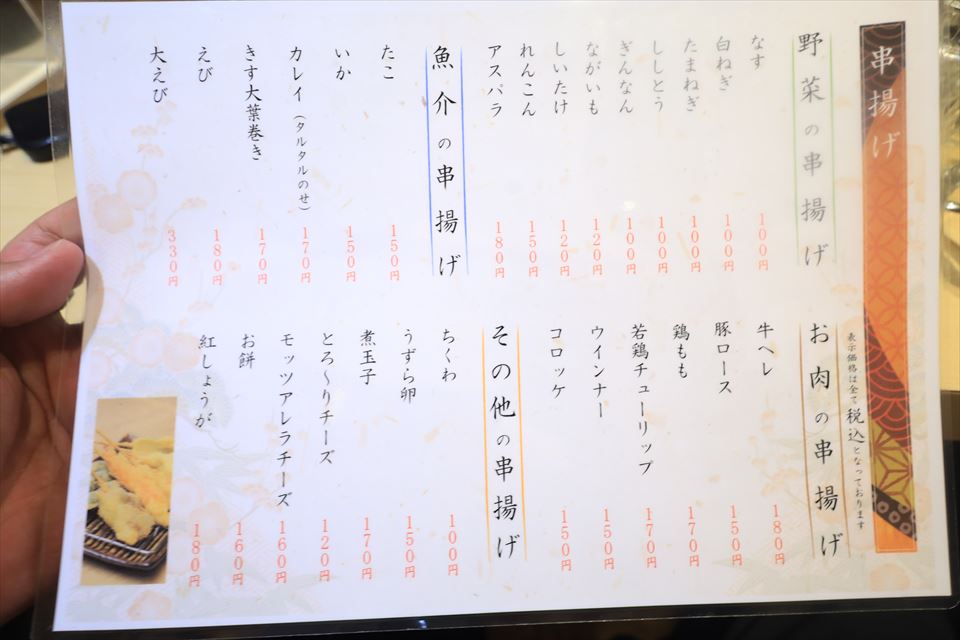 串揚げ
表示価格は全て税込となっております
野菜の串揚げ
なす 100円
白ねぎ 100円
たまねぎ 100円
ししとう 100円
ぎんなん 100円
ながいも 120円
しいたけ 120円
れんこん 150円
アスパラ 180円
魚介の串揚げ
たこ 150円
いか 150円
カレイ（タルタルのせ） 170円
きす大葉巻き 170円
えび 180円
大えび 330円
お肉の串揚げ
牛ヘレ 180円
豚ロース 150円
鶏もも 170円
若鶏チューリップ 170円
ウインナー 150円
コロッケ 150円
その他の串揚げ
ちくわ 100円
うずら卵 150円
煮玉子 170円
とろ〜りチーズ 120円
モッツアレラチーズ 160円
お餅 160円
紅しょうが 180円